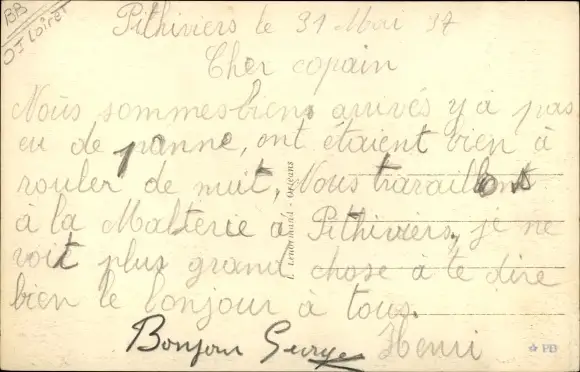 BB
OI Loiret
Pithiviers le 31 Mai 37
Cher copain
Nous sommes biens arrivés y a pas
eu de panne, ont étaient bien à
rouler de nuit, Nous travaillons
à la Malterie à Pithiviers, je ne
voit plus grand chose à te dire
bien le bonjour à tous.
Henri
Bonjour George
L. Lenormand - Orléans
PB